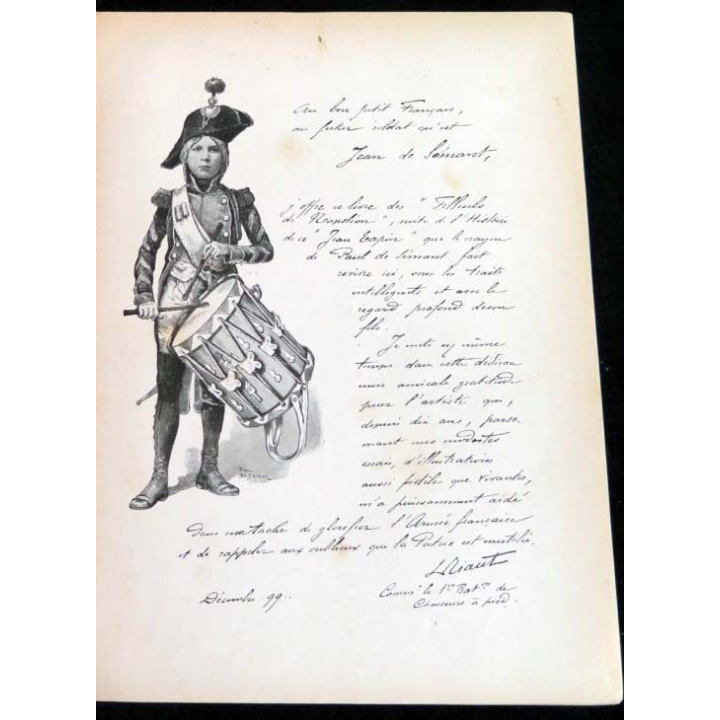 Au bon petit Français,
au futur soldat qu'est
Jean de Sémant,
j'offre ce livre des "Filleuls
de Napoléon", suite de l'Histoire
de ce "Jean Tapin" que le crayon
de Paul de Sémant fait
revivre ici, sous les traits
intelligents et avec le
regard profond de son
fils.
Je mets en même
temps dans cette dédicace
mon amicale gratitude
pour l'artiste qui,
depuis dix ans, parse-
mant mes modestes
essais, d'illustrations
aussi fidèles que vivantes,
m'a puissamment aidé
dans ma tâche de glorifier l'Armée française
et de rappeler aux oublieux que la Patrie est mutilée.
Comm<sup>t</sup> le 1<sup>er</sup> Bat<sup>on</sup> de
Chasseurs à pied.
Décembre 99.